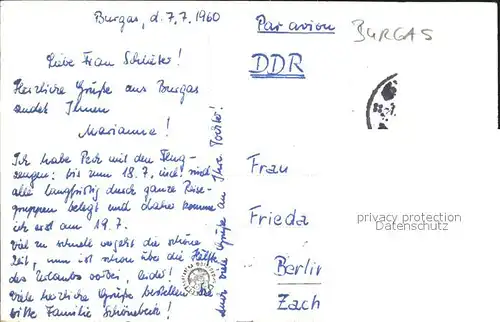 Burgas, d. 7.7.1960
Liebe Frau Schlüter!
Herzliche Grüße aus Burgas
sendet Ihnen
Marianne!
Ich habe Pech mit den Flug-
zeugen: bis zum 18.7. incl. sind
alle langfristig durch ganze Reise-
gruppen belegt und daher komme
ich erst am 19.7.
Viel zu schnell vergeht die schöne
Zeit, nun ist schon über die Hälfte
des Urlaubs vorbei, leider!
Viele herzliche Grüße bestellen Sie
bitte Familie Schönebeck!
auch viele Grüße an Ihre Tochter!
Par avion
BURGAS
DDR
Frau
Frieda
Berlin
Zach
privacy protection
Datenschutz